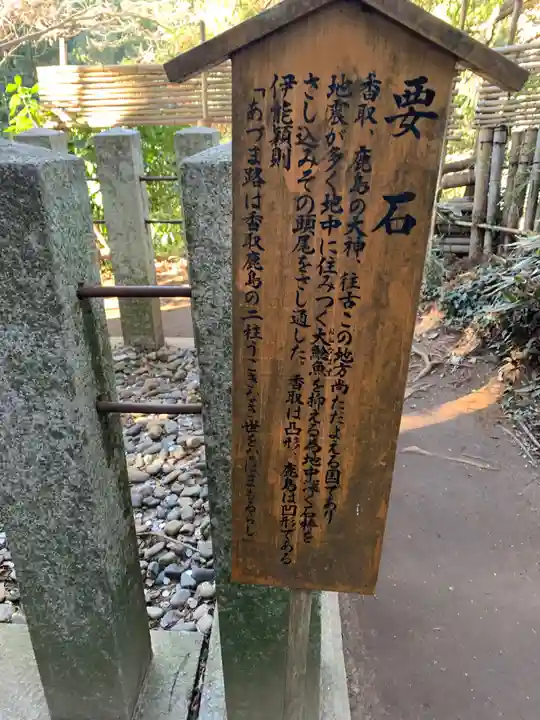 要石
香取、鹿島の大神、往古この地方尚ただよえる国であり
地震が多く地中に住みつく大鯰魚を抑える為地中深く石棒を
さし込みその頭尾をさし通した。香取は凸形、鹿島は凹形である
伊能穎則
「あづま路は香取鹿島の二柱うごきなき世を